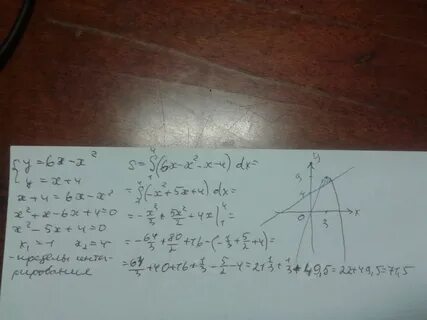 y = 6x - x²
y = x + 4
x + 4 = 6x - x²
x² + x - 6x + 4 = 0
x² - 5x + 4 = 0
x₁ = -1 x₂ = 4
- пределы интег-
рирования
S = ∫ (6x - x² - x - 4) dx =
= ∫ (-x² + 5x + 4) dx =
= -x³/3 + 5x²/2 + 4x |
= -64/3 + 80/2 + 16 - (-1/3 + 5/2 + 4) =
= 64/3 + 40 + 16 + 1/3 - 5/2 - 4 = 2 + 1/3 + 1/3 + 49,5 = 22 + 49,5 = 71,5
y
9
4
0 3 x